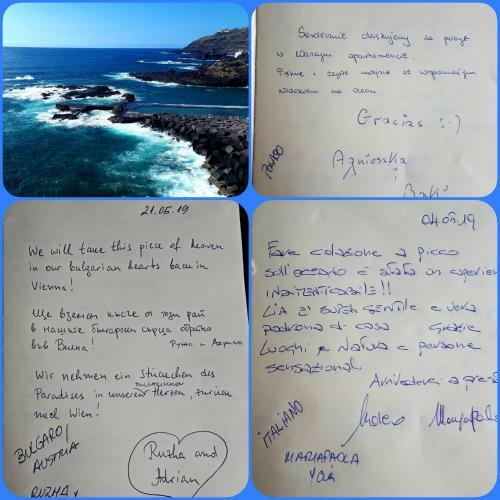 Serdecznie dziękujemy za pobyt
w Waszym apartamencie.
Piękne i czyste miejsce ze wspaniałym
widokiem na ocean.
Gracias :-)
Agnieszka
i
21.05.19
We will take this piece of heaven
in our bulgarian hearts back in
Vienna!
Ще вземем късче от този рай
в нашите български сърца обратно
във Виена!
Ружа и Адриан
Wir nehmen ein Stückchen des
Paradises in unseren Herzen, zurück
nach Wien!
BULGARO/
AUSTRIA
Ruzha and
Adrian
RUZHA y
04.05.19
Fare colazione a picco
sull'oceano è stata un'esperienza
INDIMENTICABILE!!
LIA è super gentile e vera
padrona di casa Grazie
Luoghi e Natura e persone
sensazional
Arrivederci a presto
ITALIANO
MARIAPAOLA